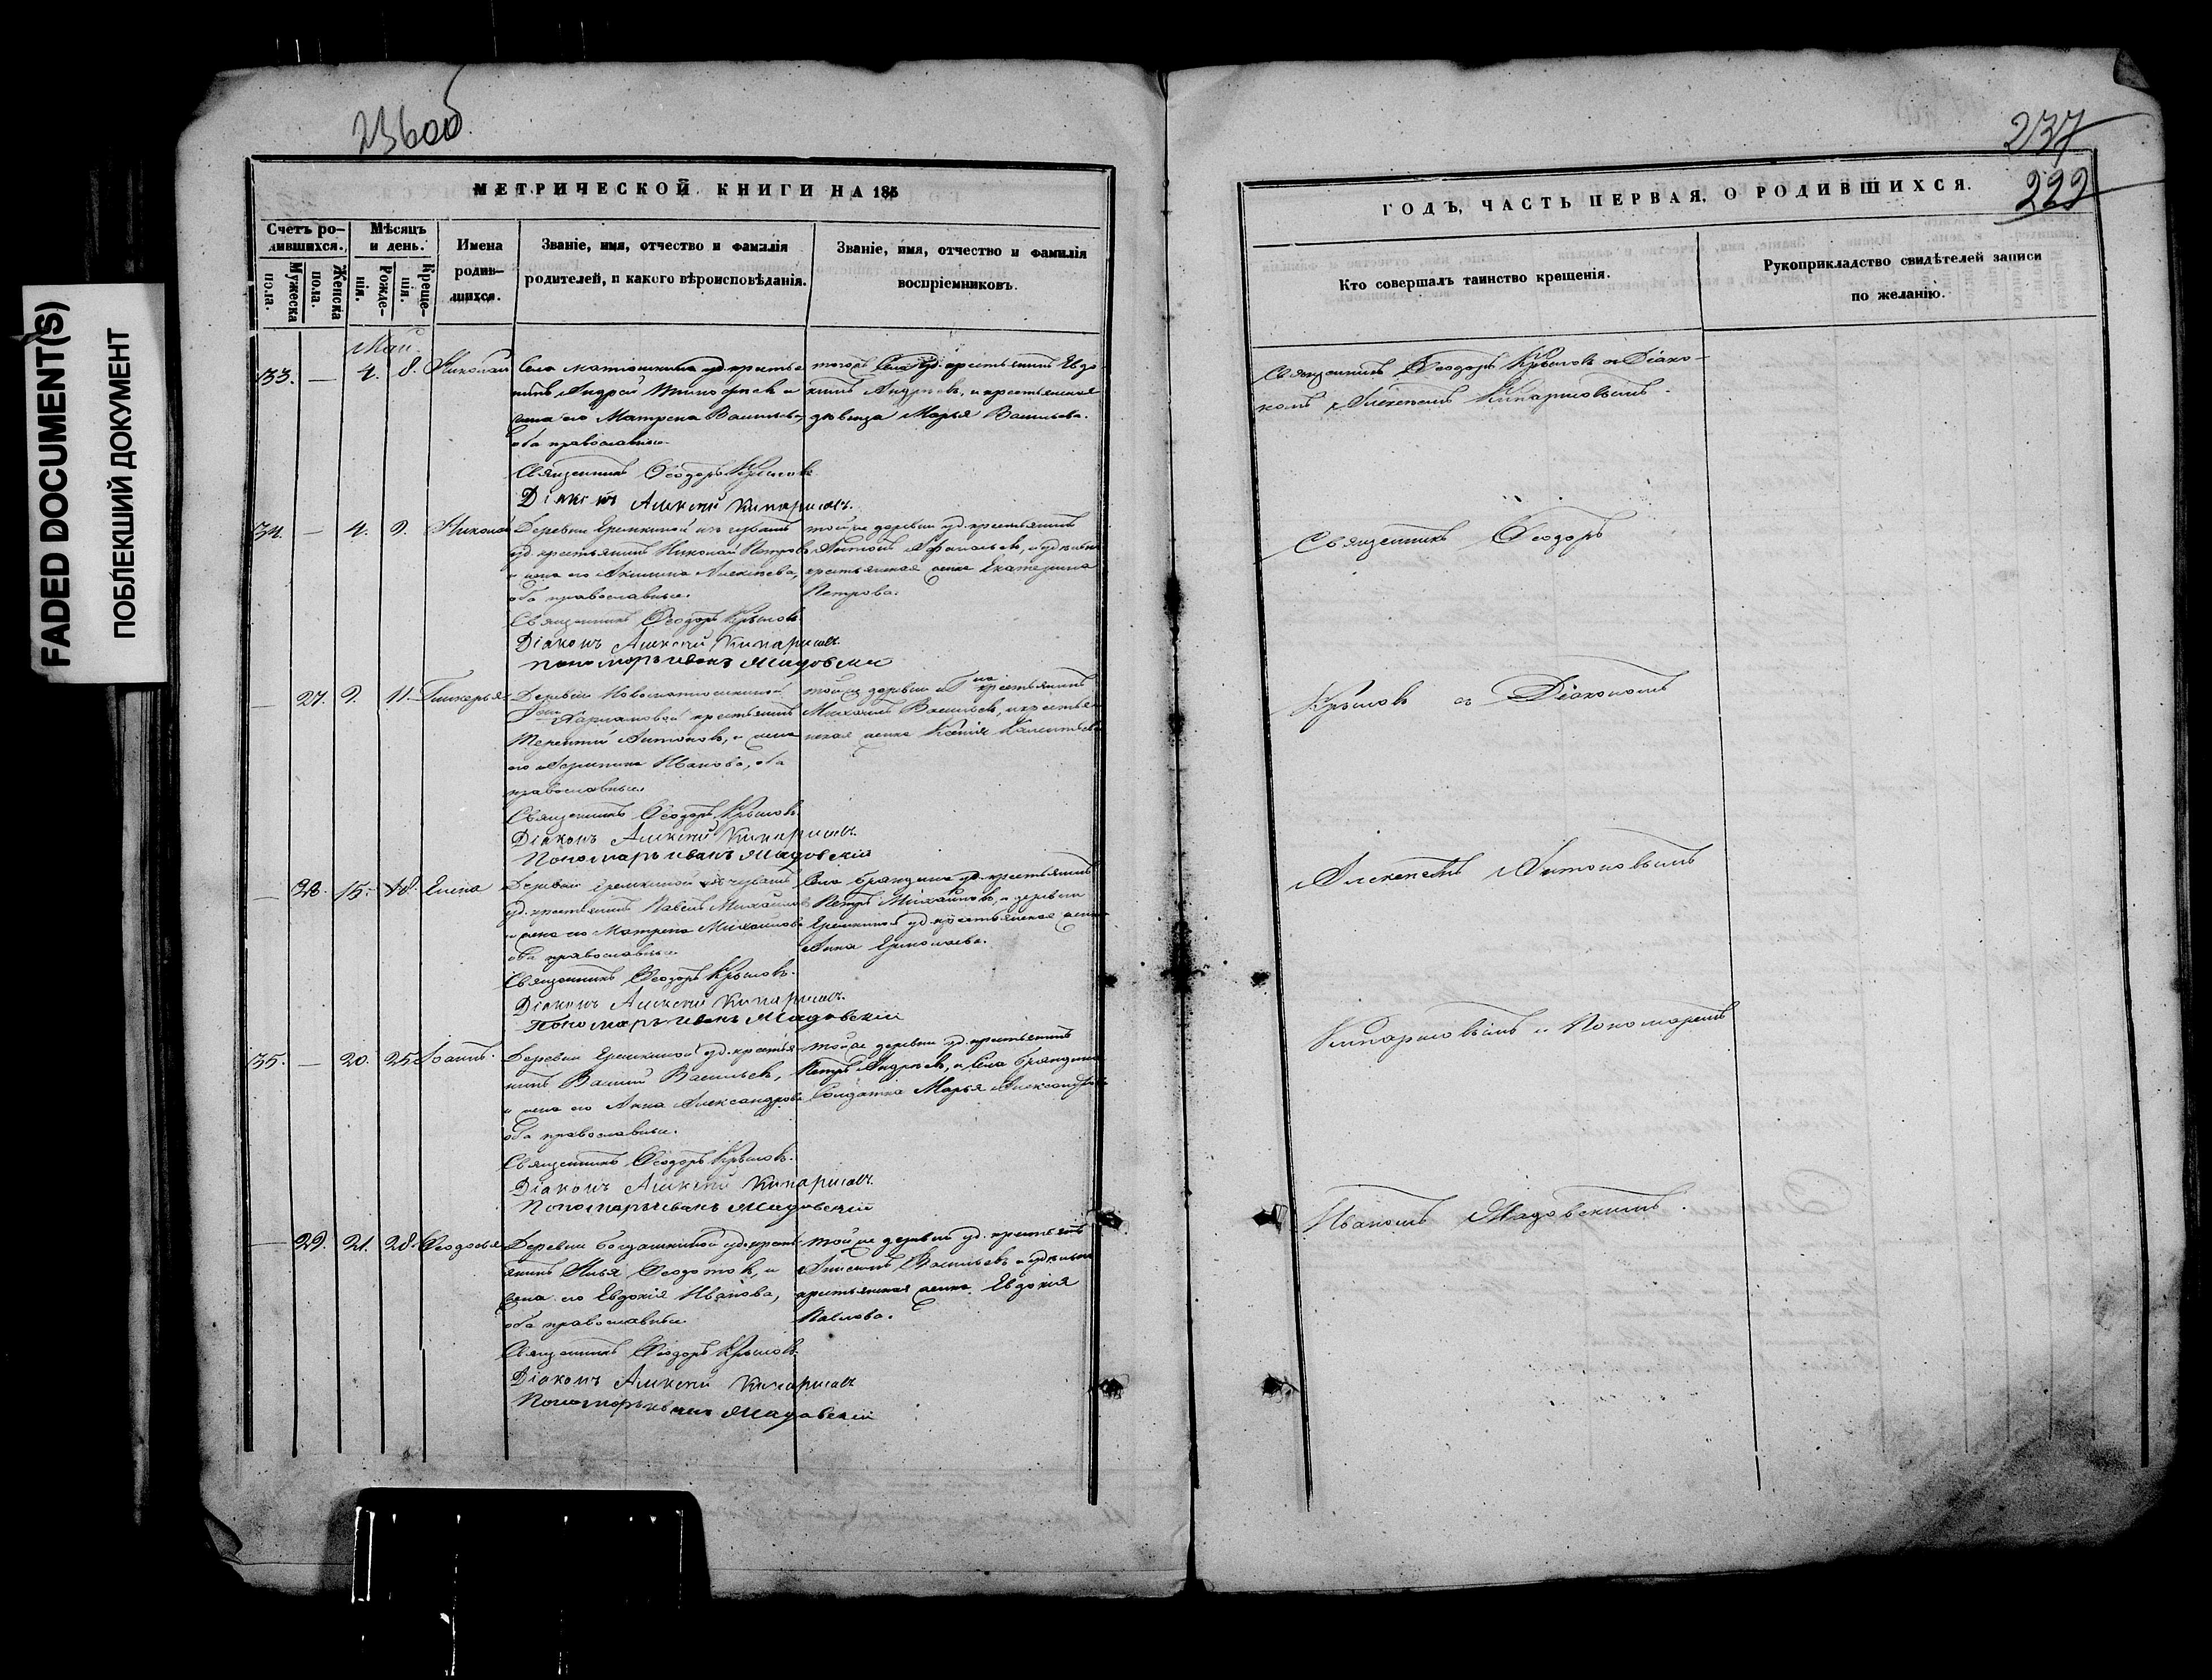 FADED DOCUMENT(S)
ПОБЛЕКШИЙ ДОКУМЕНТ
236об
МЕТРИЧЕСКОЙ КНИГИ НА 185
Счетъ ро-
дившихся.
Мужеска
пола.
Женска
пола.
Мѣсяцъ
и день.
Рожде-
нія.
Креще-
нія.
Имена
родив-
шихся.
Званіе, имя, отчество и фамилія
родителей, и какого вѣроисповѣданія.
Званіе, имя, отчество и фамилія
воспріемниковъ.
Май.
33. — 4. 8. Николай
Села Матюшкина уд. крестья
нинъ Андрей Тимофеевъ и
жена его Матрена Васильева,
оба православные.
Священникъ Ѳеодоръ Крыловъ
Діаконъ Алексей Кипарисовъ.
тогожъ села уд. крестьянинъ Евдо
кимъ Андреевъ, и крестьянская
девица Марья Васильева.
34. — 4. 9. Николай
Деревни Еремкиной изъ чувашъ
уд. крестьянинъ Николай Петровъ
и жена его Акилина Алексеева,
оба православные.
Священникъ Ѳеодоръ Крыловъ
Діаконъ Алексей Кипарисовъ.
Пономарь Иванъ
тойже деревни уд. крестьянинъ
Антонъ
крестьянская жена Екатерина
Петрова.
— 27. 9. 11. Гликерья
Деревни Новоматюшкиной
крестьянинъ
Терентий Антоновъ, и жена
его Иванова, оба
православные
Священникъ Ѳеодоръ Крыловъ
Діаконъ Алексей Кипарисовъ.
Пономарь Иванъ
тойже деревни крестьянинъ
Михаилъ Васильевъ, и крестьян
ская жена Ксенія
— 28. 15. 18. Елена
Деревни Еремкиной изъ чувашъ
уд. крестьянинъ Павелъ Михайловъ
и жена его Матрена Михайлова
оба православные.
Священникъ Ѳеодоръ Крыловъ.
Діаконъ Алексей Кипарисовъ.
Пономарь Иванъ
Села Брандина уд. крестьянинъ
Петръ Михайловъ, и деревни
Еремкиной уд. крестьянская жена
Анна Ермолаева.
35. — 20. 25. Іоаннъ.
Деревни Еремкиной уд. крестья
нинъ Василий Васильевъ,
и жена его Анна Александрова
оба православные.
Священникъ Ѳеодоръ Крыловъ.
Діаконъ Алексей Кипарисовъ.
Пономарь Иванъ
тойже деревни уд. крестьянинъ
Петръ Андреевъ, и Села Брандина
Солдатка Марья Александрова
— 29. 21. 28. Ѳеодосья
Деревни Богдашкиной уд. кресть
янинъ Илья Ѳеодотовъ, и
жена его Евдокія Иванова,
оба православные.
Священникъ Ѳеодоръ Крыловъ.
Діаконъ Алексей Кипарисовъ
Пономарь Иванъ
тойже деревни уд. крестьянинъ
Васильевъ и удельна
крестьянская жена Евдокія
Павлова.
237
222
ГОДЪ, ЧАСТЬ ПЕРВАЯ, О РОДИВШИХСЯ.
Кто совершалъ таинство крещенія.
Рукоприкладство свидѣтелей записи
по желанію.
Священникъ Ѳеодоръ Крыловъ съ Діако-
номъ Алексеемъ Кипарисовымъ.
Священникъ Ѳеодоръ
Крыловъ съ Діакономъ
Алексеемъ Антоновымъ
Кипарисовымъ и Пономаремъ
Иваномъ